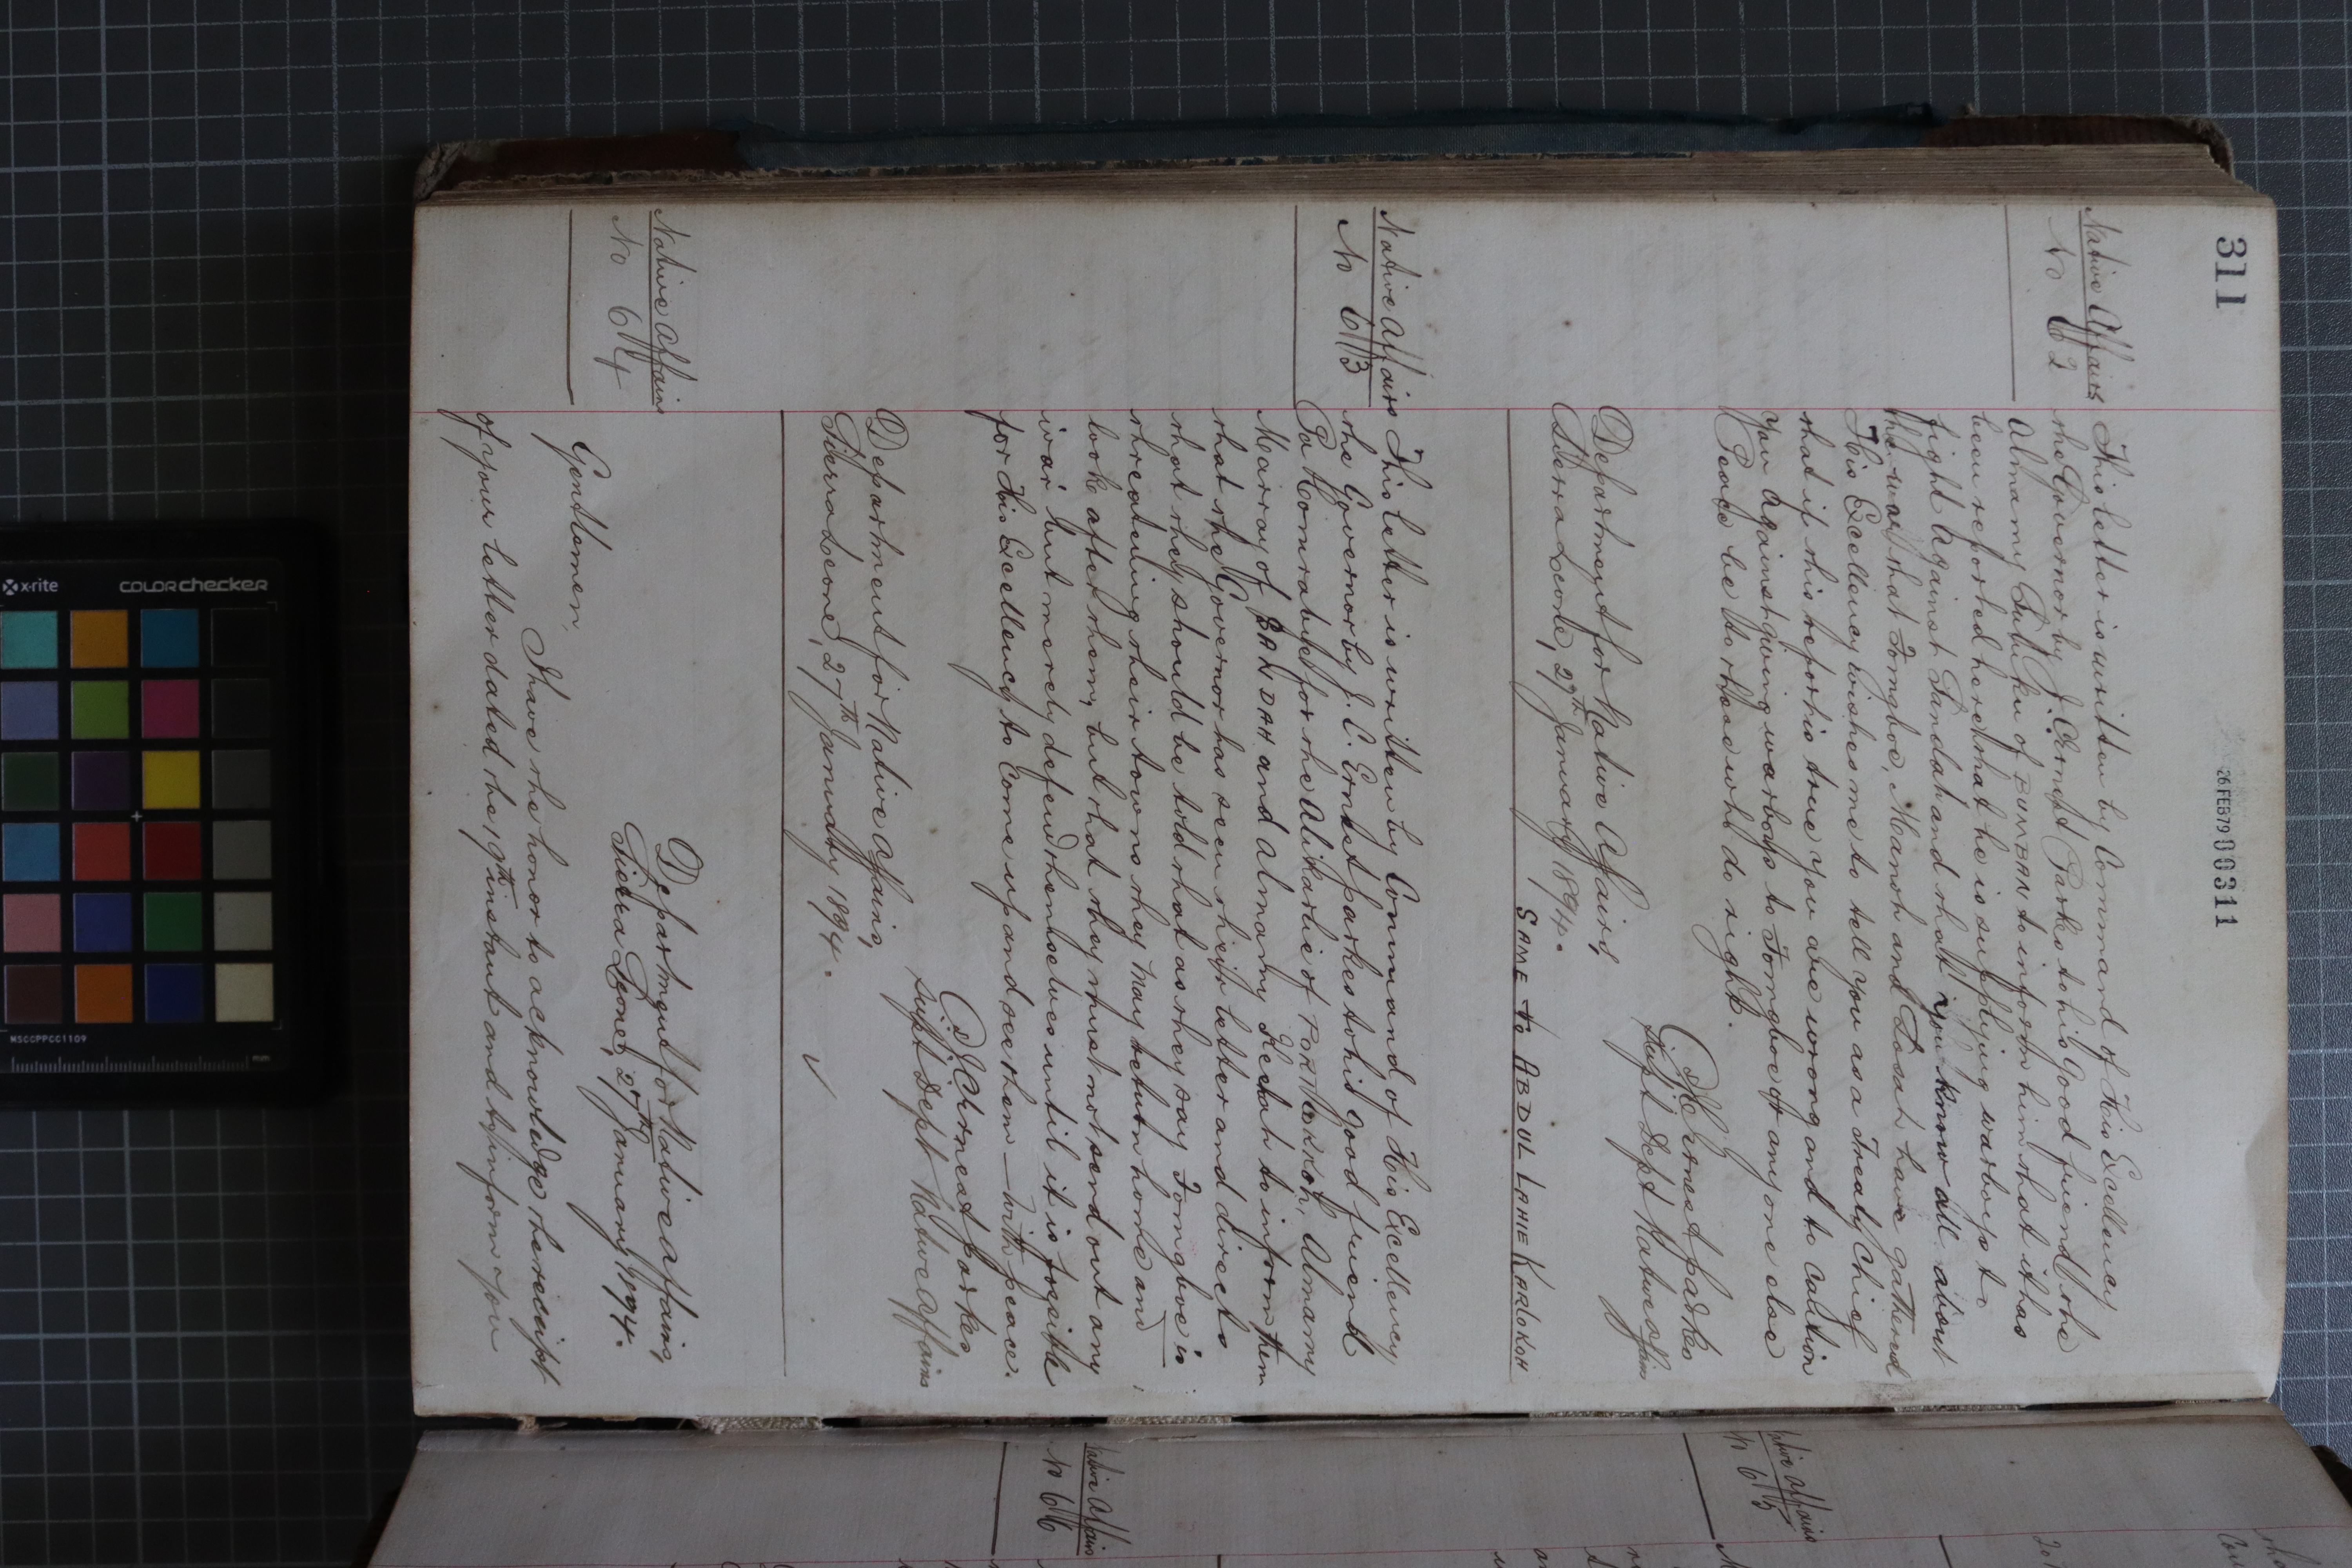 311
26 FEB 79 00311
Native Affairs
No 62
This letter is written by Command of His Excellency
the Governor by J. C. Ernest Parkes to his Good friend the
Almamy Sattu Ku of BUMBAN to inform him that it has
been reported here that he is supplying warboys to
fight against Sandah and that you know all about
the war that Fongboe, Mamoh and Losah have gathered
His Excellency wishes me to tell you as a Treaty Chief
that if this report is true you are wrong and to caution
you against giving warboys to Fongboe or any one else
Peace be to those who do right.
J C Ernest Parkes
Supt Dept Native Affairs
Department for Native Affairs,
Sierra Leone, 27th January 1894.
SAME to ABDUL LAHIE KARLOKOH
Native Affairs
No 63
This letter is written by Command of His Excellency
the Governor by J. C. Ernest Parkes to his good friend
Pa Komrabai for the Alikarlie of PORTLOKKOH, Almamy
Murray of SANDAH and Almamy Keetah to inform them
that the Governor has seen their letter and directs
that they should be told that as they say Fongboe is
threatening their towns they may return home and
look after them, but that they must not send out any
war but merely defend themselves until it is possible
for His Excellency to Come up and see them — with peace.
J C Ernest Parkes
Supt Dept Native Affairs
Department for Native Affairs,
Sierra Leone, 27th January 1894.
Native Affairs
No 64
Department for Native Affairs,
Sierra Leone, 27th January 1894.
Gentlemen,
I have the honor to acknowledge the receipt
of your letter dated the 19th instant and to inform you
Native Affairs
No 65
Native Affairs
No 66
x-rite
COLORchecker
MSCCPPCC1109
mm